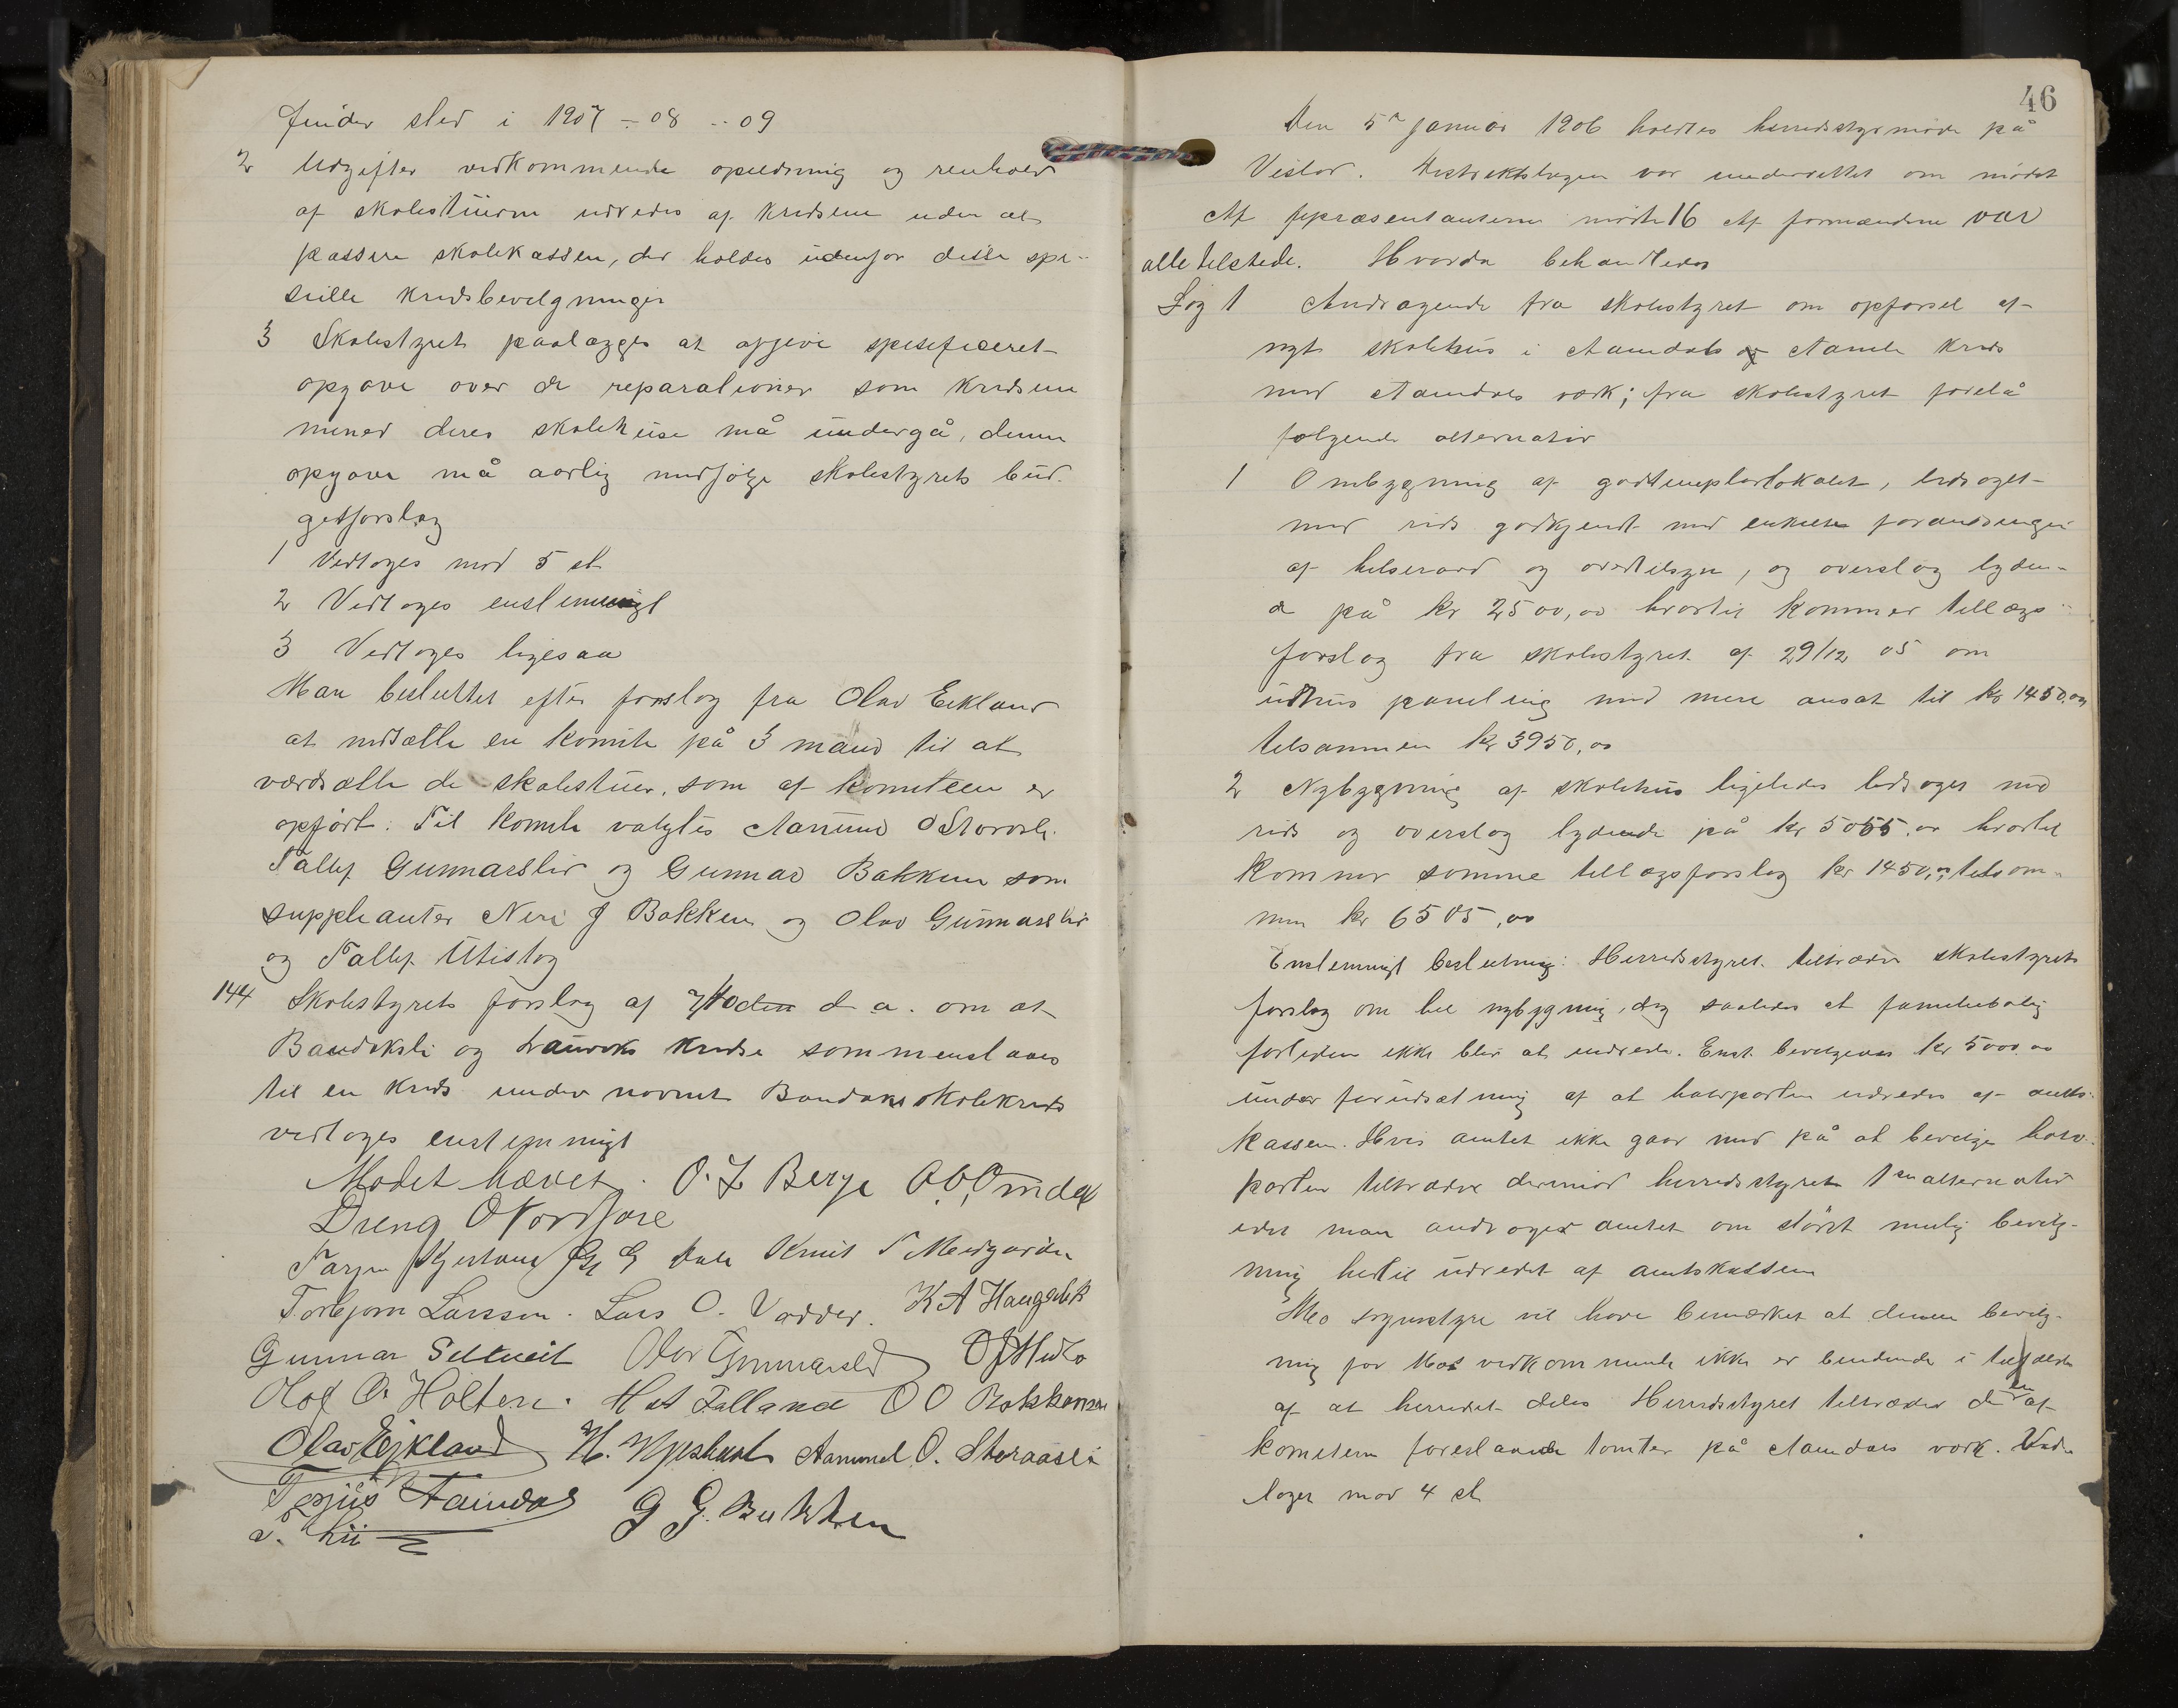 finder sted i 1907 – 08 – 09
2 Udgifter vedkommende opledning og renhold
af skolestuerne udredes af kredsene uden at
passere skolekassen, der holdes udenfor disse spe-
sielle kredsbevilgninger
3 Skolestyret paalægges at opgive spesificeret
opgave over de reparationer som kredsene
mener deres skolehuse må undergå, denne
opgave må aarlig medfølge skolestyrets bud-
getforslag
1 Vedtoges mod 5 st
2 Vedtoges enstemmigt
3 Vedtoges ligesaa
Man besluttet efter forslag fra Olav Eikland
at nedsætte en komite på 3 mand til at
værdsætte de skolestuer, som af komiteen er
opført. Til komite valgtes Aanund O Storosli.
Tallef Gunnarsli og Gunnar Bakken som
suppleanter Neri J Bakken og Olav Gunnarsli
og Tallef Utistog
144 Skolestyrets forslag af d. a. om at
Bandaksli og kredse sammenslaaes
til en kreds under navnet Bandaks skolekreds
vedtoges enstemmigt
Mødet hævet. O. J. Berge O. O. Omdal
Dreng O Nordfore
Tarjei G Dale Knut T Midgarden
Torbjørn Larsson. Lars O. Vadder. K A Haugelik
Gunnar Seltveit Olav Gunnarsli O J
Olaf O. Holten. H A Felland O O Bakkane
Olav Ejkland H. Aanund O. Storaasli
Terjus Aamdal G G. Bakken
a. Lii
46
Den 5te januar 1906 holdtes herredsstyremøde på
Vistad. Distriktslægen var underrettet om mødet
Af repræsentanterne mødte 16 Af formændene var
alle tilstede. Hvorda behandledes
Sag 1 Andragende fra skolestyret om opførsel af
nyt skolehus i Aamdals og Aamli kreds
med Aamdals værk; fra skolestyret forelå
følgende alternativ
1 Ombygning af godtemplarlokalet, ledsaget
med rids godkjendt med enkelte forandringer
af helseraad og overtilsyn, og overslag lyden-
de på kr 2500,00 hvortil kommer tillægs-
forslag fra skolestyret af 29/12 05 om
udhus paneling med mere ansat til kr 1450,00
tilsammen kr 3950,00
2 Nybygning af skolehus ligeledes ledsaget med
rids og overslag lydende på kr 5055,00 hvortil
kommer samme tillægsforslag kr 1450,00, tilsam-
men kr 6505,00
Enstemmigt beslutning: Herredsstyret tiltræder skolestyrets
forslag om hel nybygning, dog saaledes at familiebolig
fortiden ikke blir at indrede. Enst. bevilgedes kr 5000,00
under forudsætning af at halvparten udredes af amts-
kassen. Hvis amtet ikke gaar med på at bevilge halv-
parten tiltræder dermed herredsstyret 1ste alternativ
idet man andrager amtet om størst mulig bevilg-
ning hertil udredet af amtskassen
Mo sognestyre vil have bemærket at denne bevilg-
ning for Mos vedkommende ikke er bindende i tilfælde
af at herredet deles Herredsstyret tiltræder den af
komiteen foreslaaede tomter på Aamdals værk. Ved-
toges mod 4 st